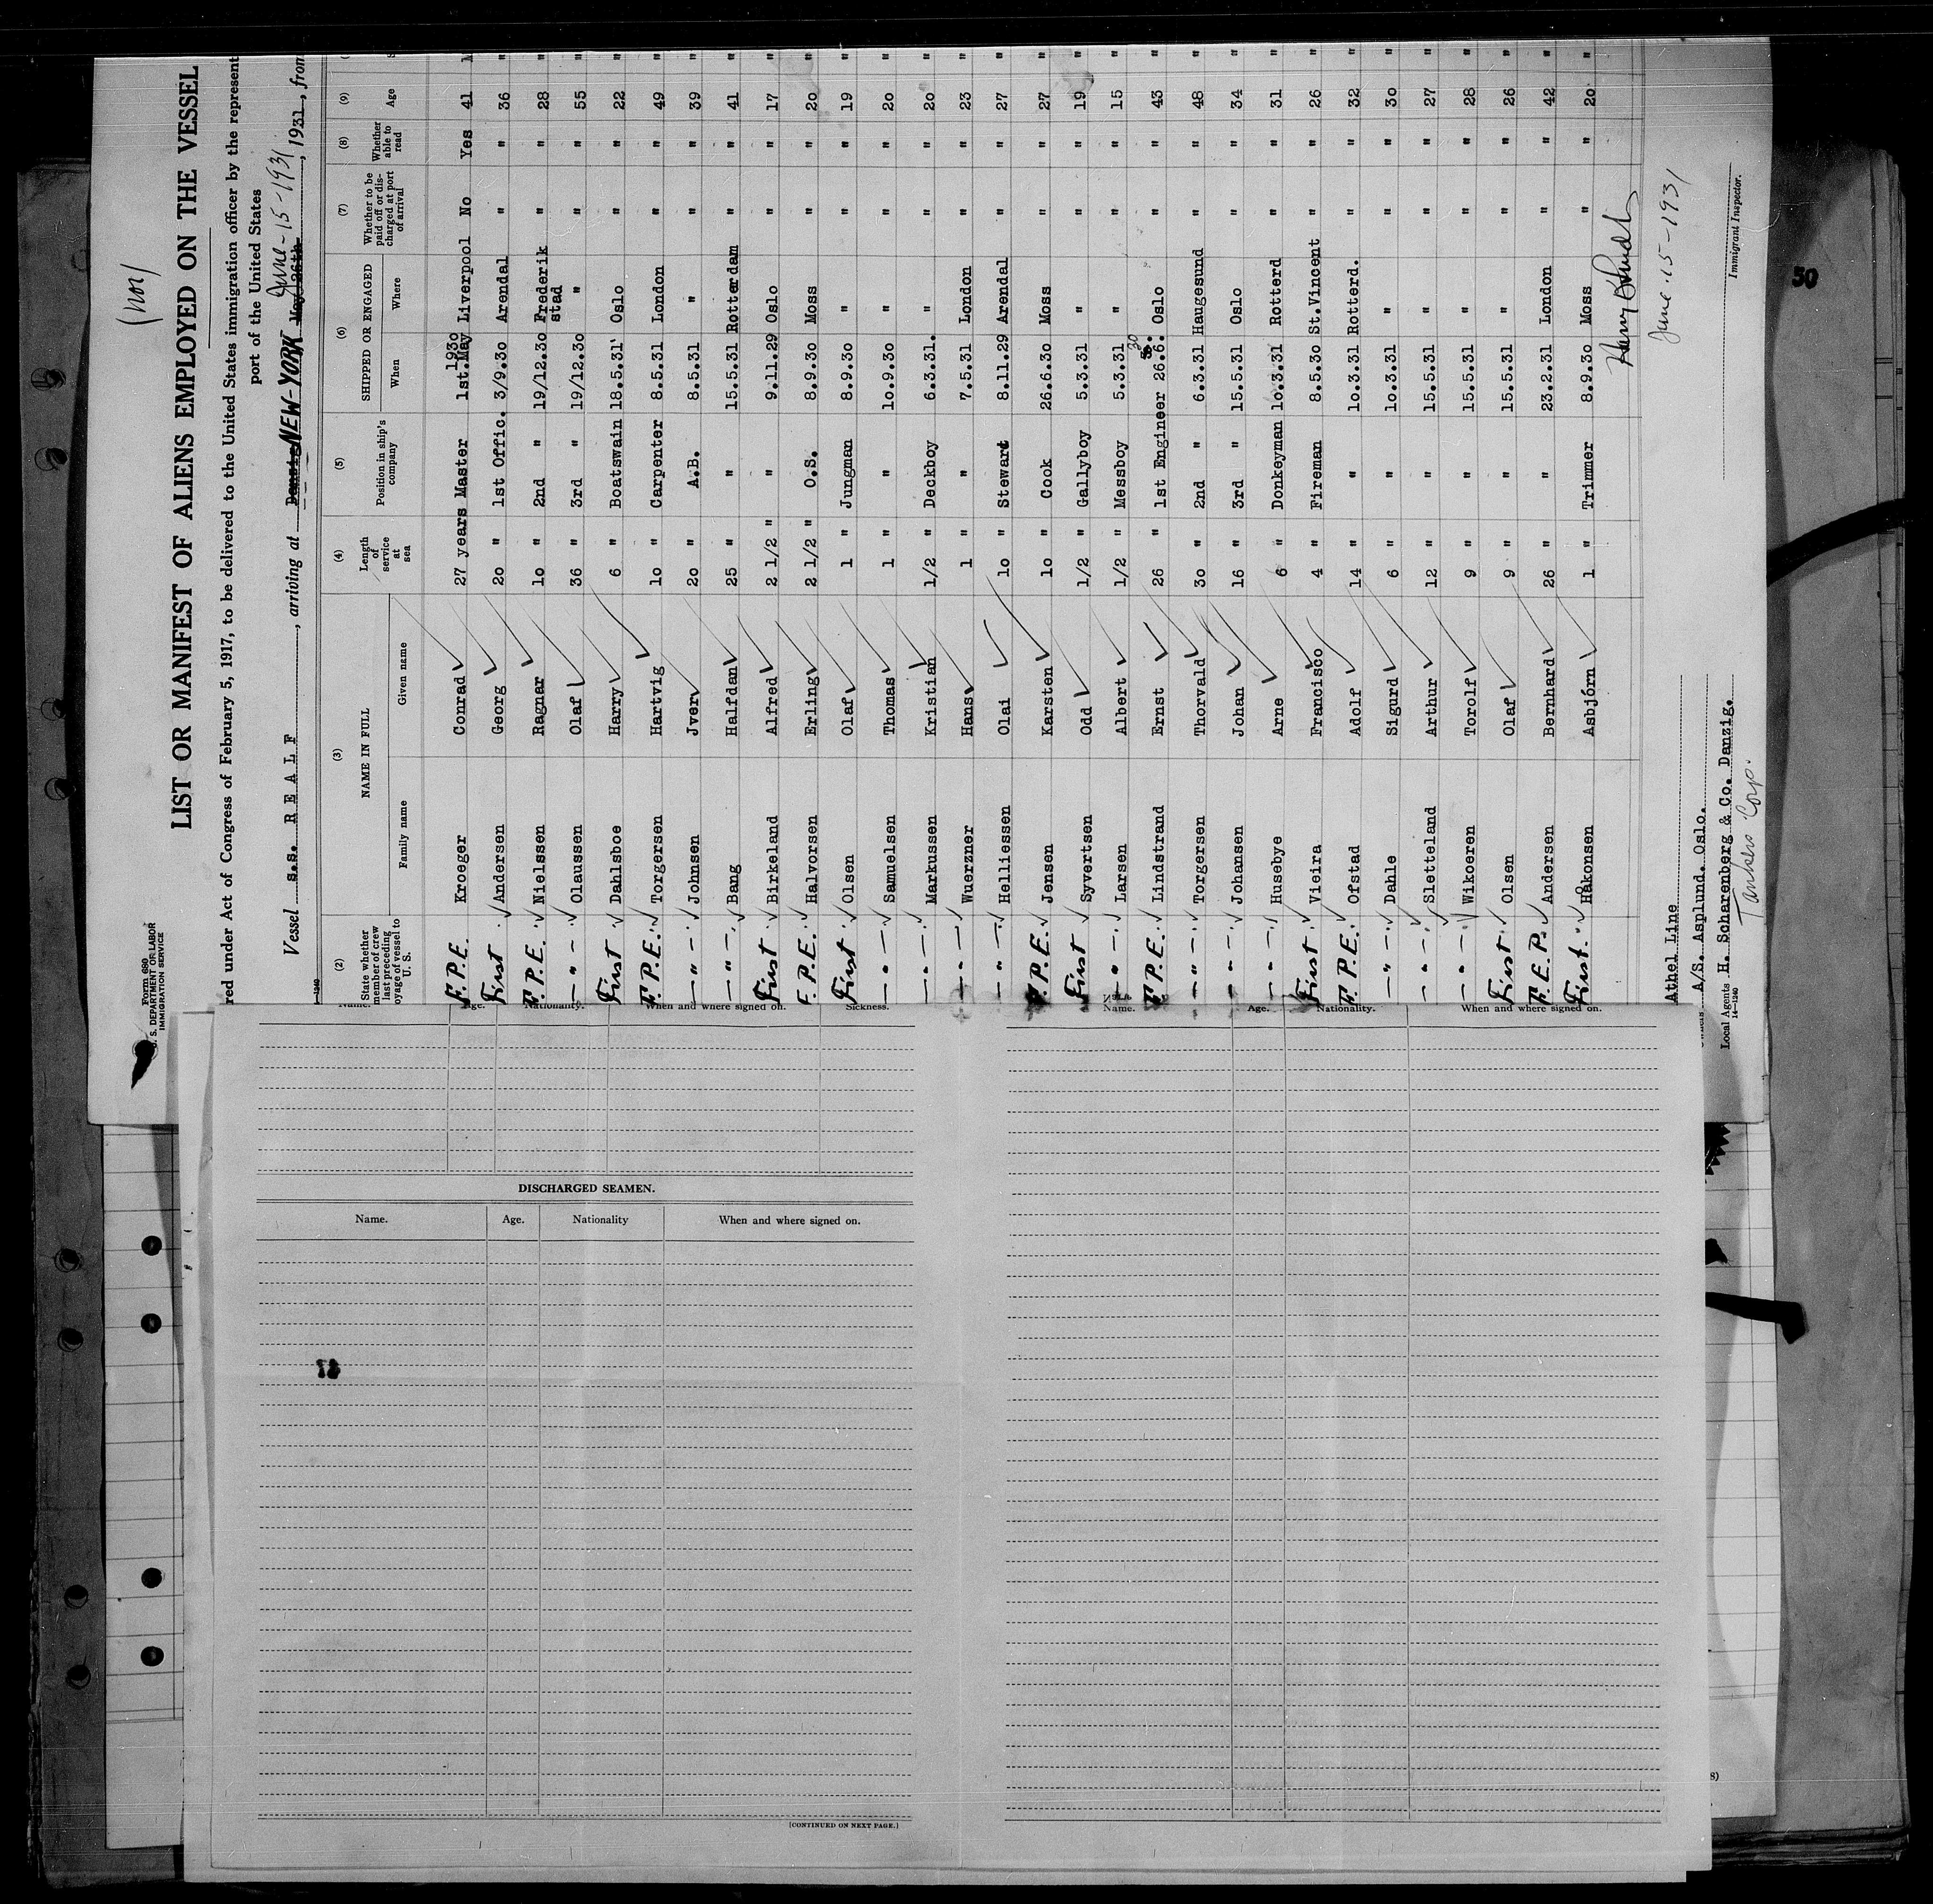 (nor)
LIST OR MANIFEST OF ALIENS EMPLOYED ON THE VESSEL
Form 680
U. S. DEPARTMENT OF LABOR
IMMIGRATION SERVICE
red under Act of Congress of February 5, 1917, to be delivered to the United States immigration officer by the represent
port of the United States
Vessel s.s. R E A L F , arriving at Danzig NEW-YORK May 26th June-15-1931, 1931, from
14-1240
(2) (3) (4) (5) (6) (7) (8) (9)
State whether member of crew last preceding voyage of vessel to U. S. NAME IN FULL Length of service at sea Position in ship's company SHIPPED OR ENGAGED Whether to be paid off or discharged at port of arrival Whether able to read Age
Family name Given name When Where
F.P.E. Kroeger Conrad 27 years Master 1st.May 1930 Liverpool No Yes 41
First Andersen Georg 20 " 1st Offic. 3/9.30 Arendal " " 36 "
F.P.E. Nielssen Ragnar 10 " 2nd " 19/12.30 Frederik stad " " 28 "
— " — Olaussen Olaf 36 " 3rd " 19/12.30 " " " 55 "
First Dahlsboe Harry 6 " Boatswain 18.5.31 Oslo " " 22 "
F.P.E. Torgersen Hartvig 10 " Carpenter 8.5.31 London " " 49 "
— " — Johnsen Jver 20 " A.B. 8.5.31 " " " 39 "
— " — Bang Halfdan 25 " " 15.5.31 Rotterdam " " 41 "
First Birkeland Alfred 2 1/2 " " 9.11.29 Oslo " " 17 "
F.P.E. Halvorsen Erling 2 1/2 " O.S. 8.9.30 Moss " " 20 "
First Olsen Olaf 1 " Jungman 8.9.30 " " " 19 "
— " — Samuelsen Thomas 1 " " 10.9.30 " " " 20 "
— " — Markussen Kristian 1/2 " Deckboy 6.3.31. " " " 20 "
— " — Wuerzner Hans 1 " " 7.5.31 London " " 23 "
— " — Helliessen Olai 10 " Stewart 8.11.29 Arendal " " 27 "
F.P.E. Jensen Karsten 10 " Cook 26.6.30 Moss " " 27 "
First Syvertsen Odd 1/2 " Gallyboy 5.3.31 " " " 19 "
— " — Larsen Albert 1/2 " Messboy 5.3.31 " " " 15 "
F.P.E. Lindstrand Ernst 26 " 1st Engineer 26.6.30 Oslo " " 43 "
— " — Torgersen Thorvald 30 " 2nd " 6.3.31 Haugesund " " 48 "
— " — Johansen Johan 16 " 3rd " 15.5.31 Oslo " " 34 "
— " — Husebye Arne 6 " Donkeyman 10.3.31 Rotterd " " 31 "
First Vieira Francisco 4 " Fireman 8.5.30 St.Vincent " " 26 "
F.P.E. Ofstad Adolf 14 " " 10.3.31 Rotterd. " " 32 "
— " — Dahle Sigurd 6 " " 10.3.31 " " " 30 "
— " — Sletteland Arthur 12 " " 15.5.31 " " " 27 "
— " — Wikoeren Torolf 9 " " 15.5.31 " " " 28 "
First Olsen Olaf 9 " " 15.5.31 " " " 26 "
F.E.P. Andersen Bernhard 26 " " 23.2.31 London " " 42 "
First. Håkonsen Asbjórn 1 " Trimmer 8.9.30 Moss " " 20 "
June.15-1931
Athel Line
A/S. Asplund. Oslo.
Local Agents H. Scharenberg & Co. Danzig.
Tankers Corp.
14-1240
Immigrant Inspector.
50
Name. Age. Nationality. When and where signed on. Sickness.
DISCHARGED SEAMEN.
Name. Age. Nationality When and where signed on.
[CONTINUED ON NEXT PAGE.]
Name. Age. Nationality. When and where signed on.
8)